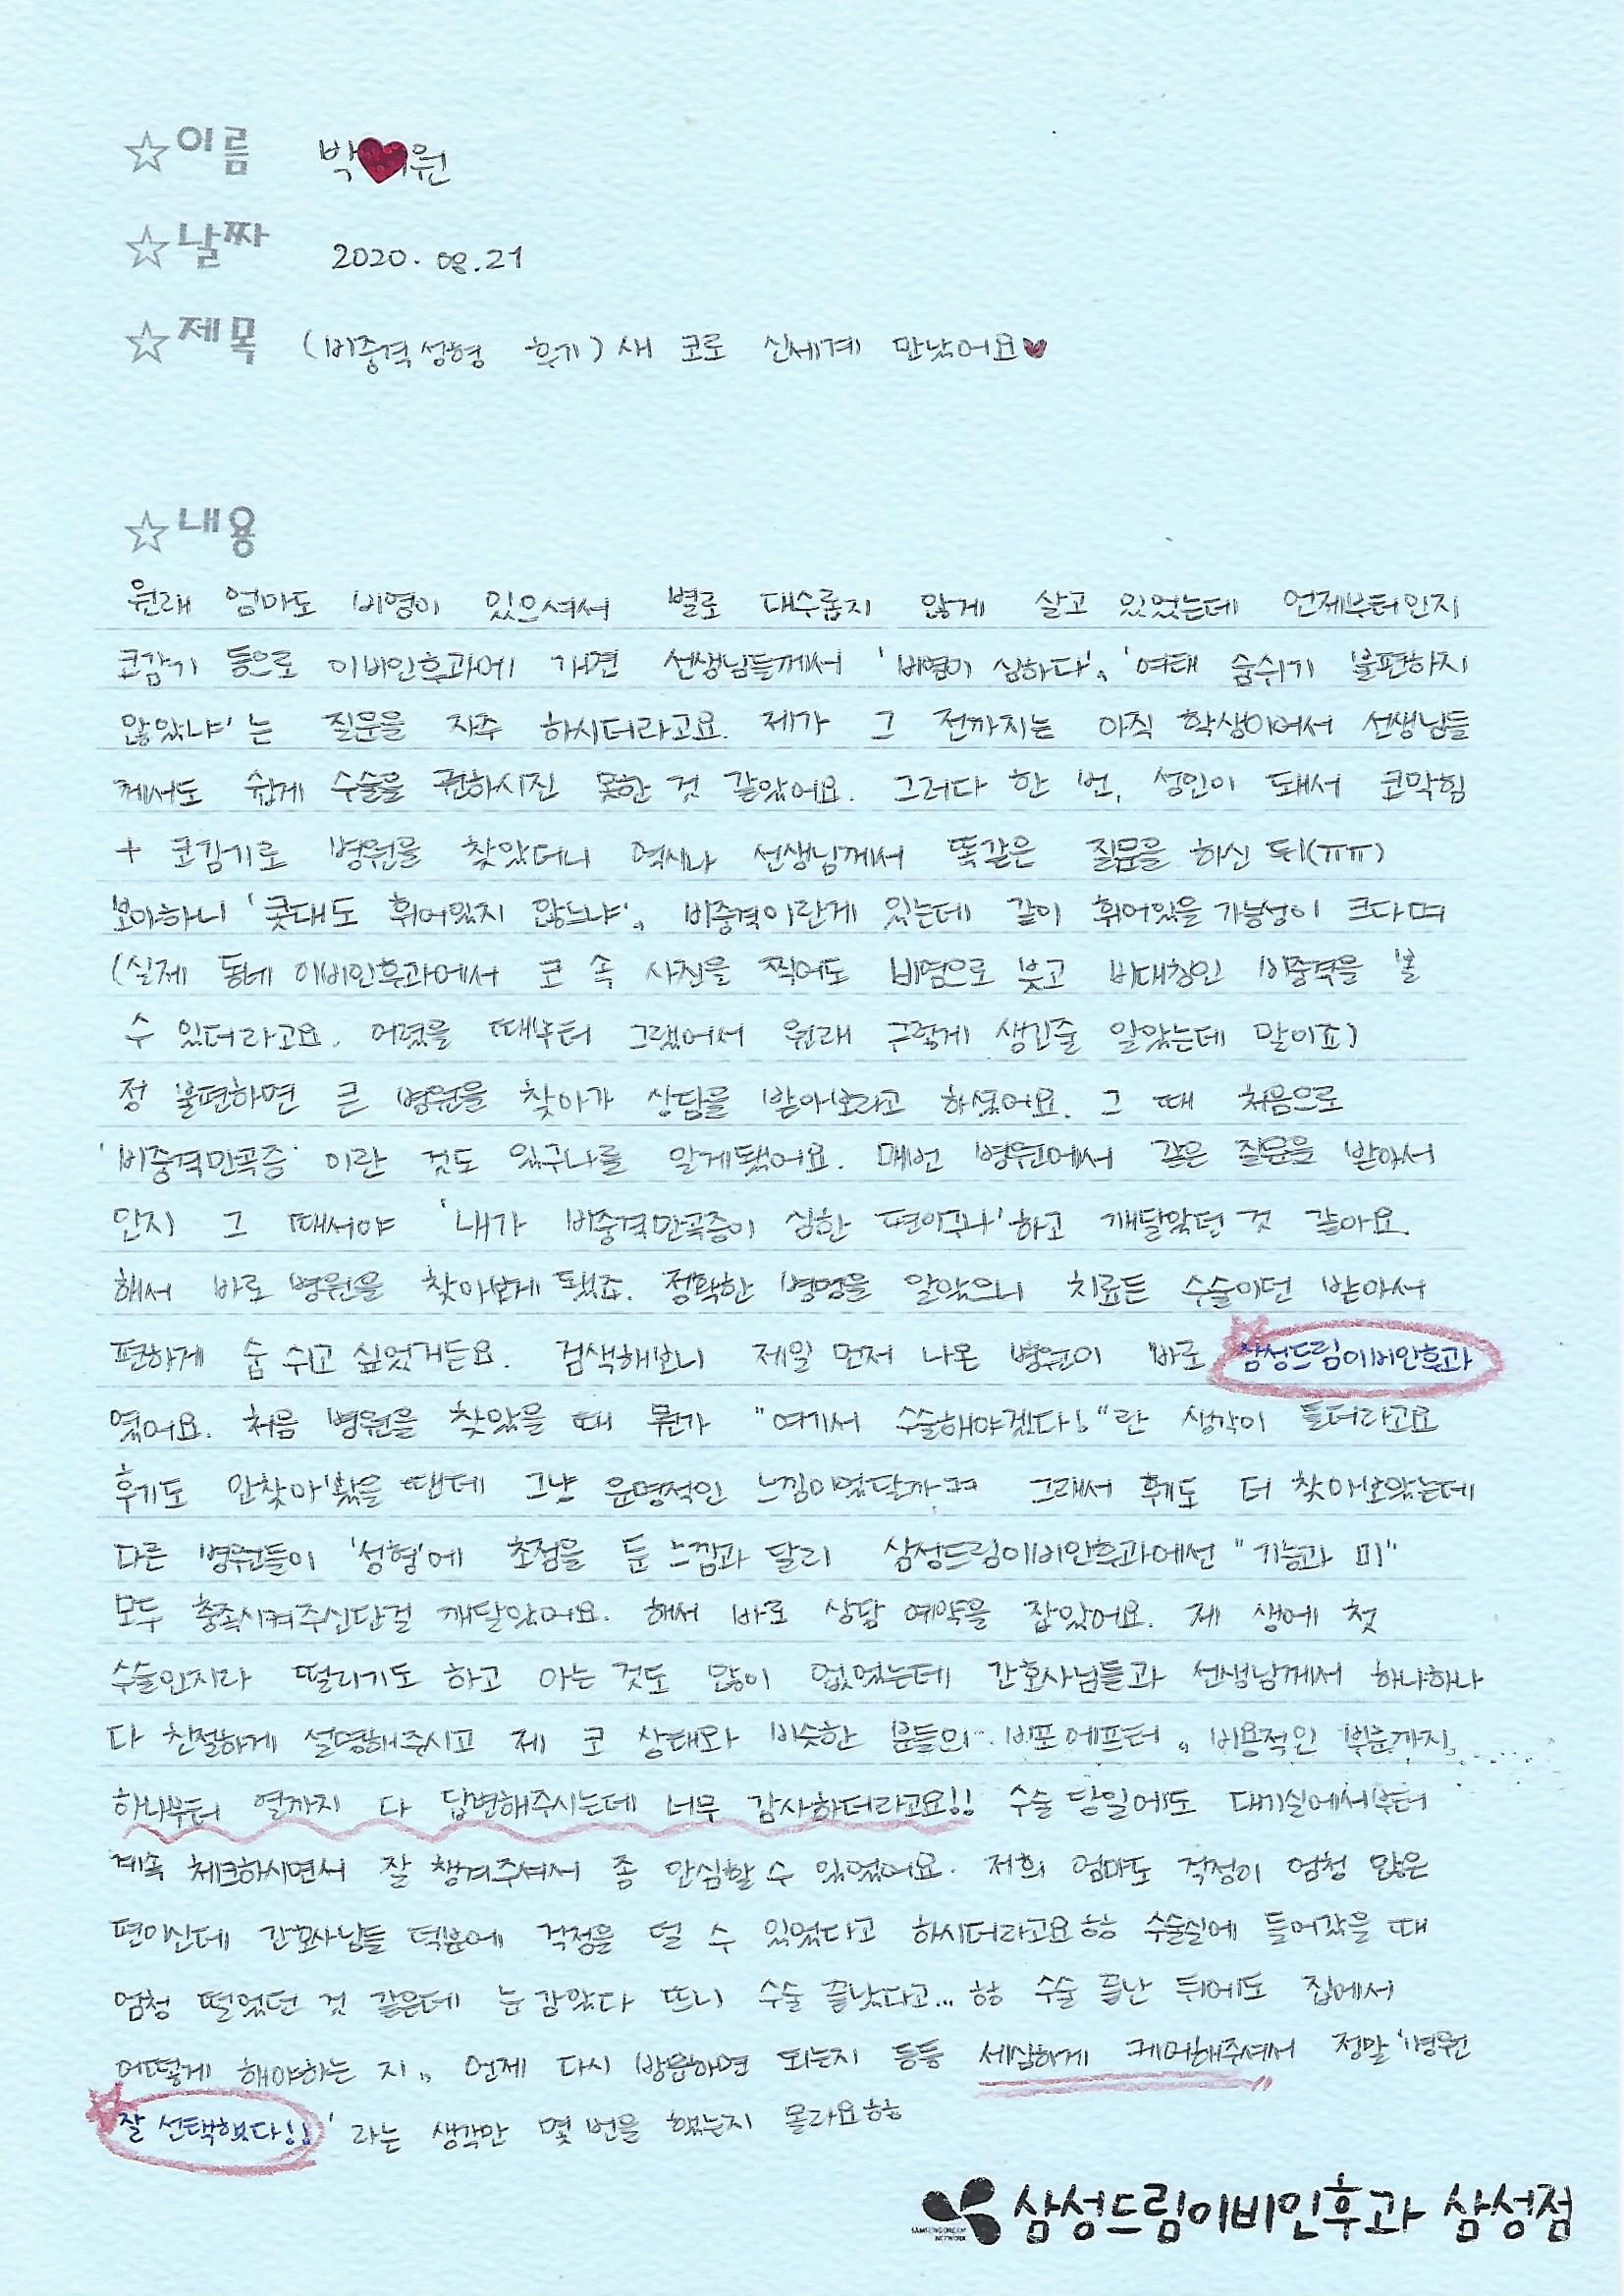 ☆이름 박♥원
☆날짜 2020. 08. 21
☆제목 (비중격성형 후기) 새 코로 신세계 만났어요♥
☆내용
원래 엄마도 비염이 있으셔서 별로 대수롭지 않게 살고 있었는데 언제부터인지
코감기 등으로 이비인후과에 가면 선생님들께서 '비염이 심하다', '여태 숨쉬기 불편하지
않았냐'는 질문을 자주 하시더라고요. 제가 그 전까지는 아직 학생이어서 선생님들
께서도 쉽게 수술을 권하시진 못한 것 같았어요. 그러다 한 번, 성인이 돼서 코막힘
+ 코감기로 병원을 찾았더니 역시나 선생님께서 똑같은 질문을 하신 뒤(ㅠㅠ)
보아하니 '콧대도 휘어있지 않느냐', 비중격이란게 있는데 같이 휘어있을 가능성이 크다며
(실제 동네 이비인후과에서 코 속 사진을 찍어도 비염으로 붓고 비대칭인 비중격을 볼
수 있더라고요. 어렸을 때부터 그랬어서 원래 그렇게 생긴줄 알았는데 말이죠)
정 불편하면 큰 병원을 찾아가 상담을 받아보라고 하셨어요. 그 때 처음으로
'비중격만곡증' 이란 것도 있구나를 알게됐어요. 매번 병원에서 같은 질문을 받아서
인지 그 때서야 '내가 비중격만곡증이 심한 편이구나'하고 깨달았던 것 같아요.
해서 바로 병원을 찾아보게 됐죠. 정확한 병명을 알았으니 치료든 수술이던 받아서
편하게 숨 쉬고 싶었거든요. 검색해보니 제일 먼저 나온 병원이 바로 삼성드림이비인후과
였어요. 처음 병원을 찾았을 때 뭔가 "여기서 수술해야겠다!"란 생각이 들더라고요
후기도 안찾아봤을 땐데 그냥 운명적인 느낌이었달까ㅋㅋ 그래서 후기도 더 찾아보았는데
다른 병원들이 '성형'에 초점을 둔 느낌과 달리 삼성드림이비인후과에선 "기능과 미"
모두 충족시켜주신단걸 깨달았어요. 해서 바로 상담 예약을 잡았어요. 제 생에 첫
수술인지라 떨리기도 하고 아는 것도 많이 없었는데 간호사님들과 선생님께서 하나하나
다 친절하게 설명해주시고 제 코 상태와 비슷한 분들의 비포에프터, 비용적인 부분까지
하나부터 열까지 다 답변해주시는데 너무 감사하더라고요!! 수술 당일에도 대기실에서부터
계속 체크하시면서 잘 챙겨주셔서 좀 안심할 수 있었어요. 저희 엄마도 걱정이 엄청 많은
편이신데 간호사님들 덕분에 걱정을 덜 수 있었다고 하시더라고요ㅎㅎ 수술실에 들어갔을 때
엄청 떨었던 것 같은데 눈 감았다 뜨니 수술 끝났다고... ㅎㅎ 수술 끝난 뒤에도 집에서
어떻게 해야하는 지, 언제 다시 방문하면 되는지 등등 세심하게 케어해주셔서 정말 '병원
잘 선택했다!!' 라는 생각만 몇 번을 했는지 몰라요ㅎㅎ
SAMSUNG DREAM NETWORK 삼성드림이비인후과 삼성점